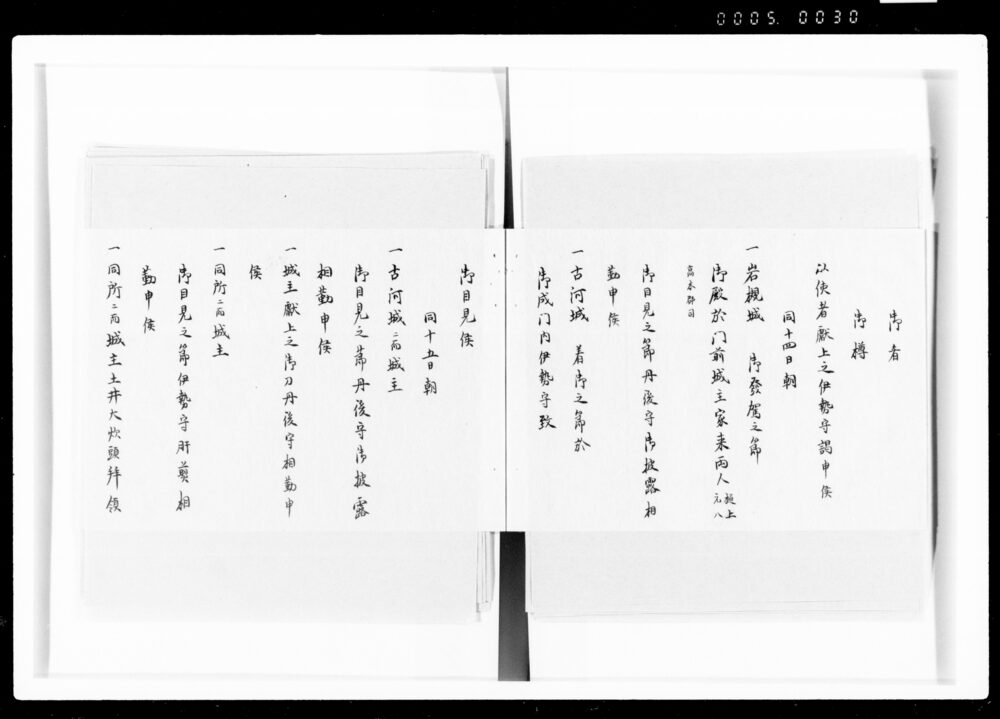 0005. 0030
御肴
御樽
以使者献上之伊勢守謁申候
同十四日朝
一岩槻城 御發駕之節
御殿於门前城主家来両人 坂上元八
高木群司
御目見之節丹後守御披露相
勤申候
一古河城 着御之節於
御成门内伊勢守致
御目見候
同十五日朝
一古河城ニ而城主
御目見之節丹後守御披露
相勤申候
一城主献上之御刀丹後守相勤申
候
一同所ニ而城主
御目見之節伊勢守肝煎相
勤申候
一同所ニ而城主土井大炊頭拜領